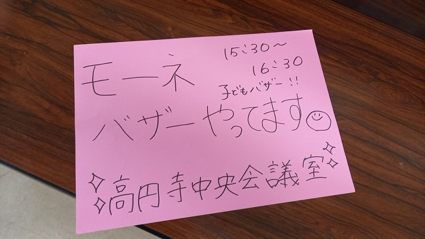 15:30～
16:30
モーネ
子どもバザー!!
バザーやってます
高円寺中央会議室